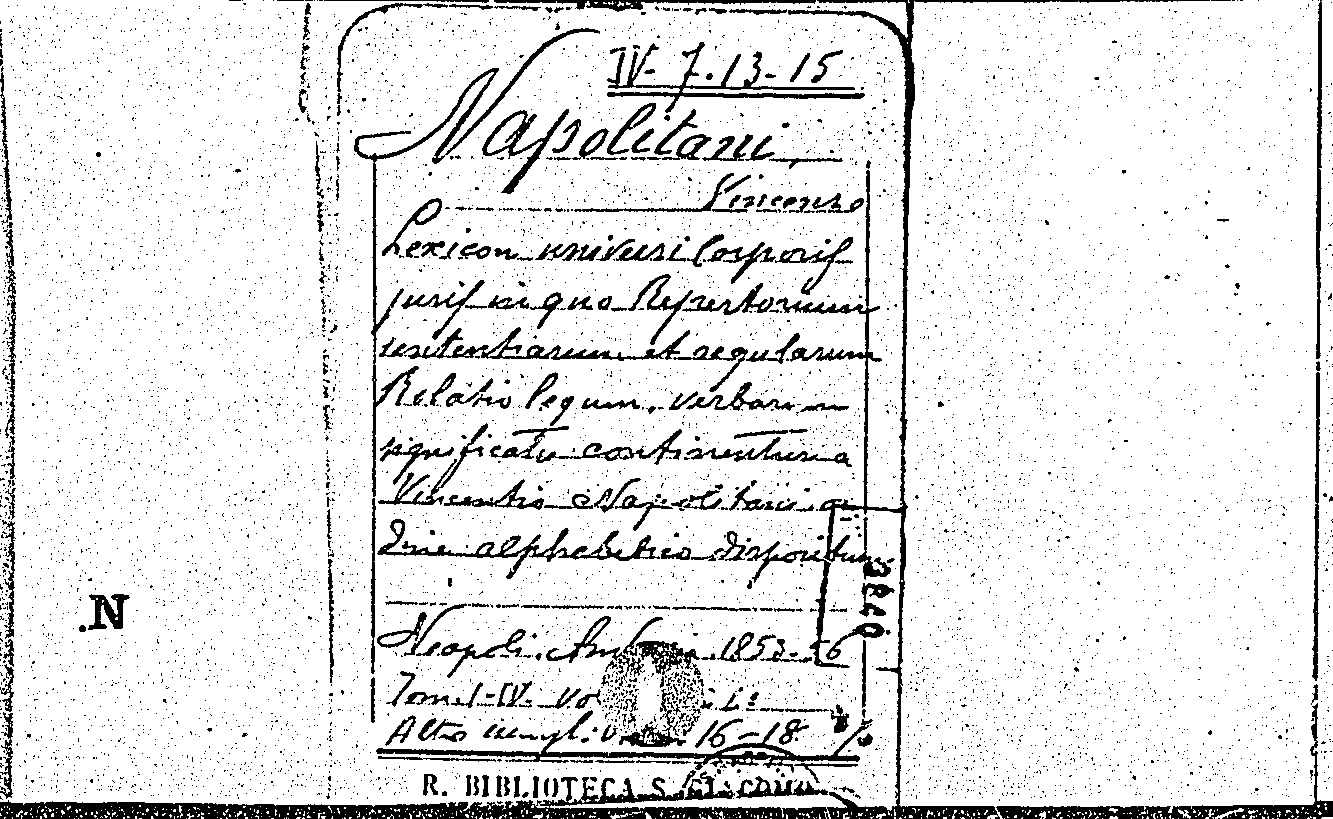 IV- 7.13-15
Napolitani,
Vincenzo
Lexicon universi Corporis
juris in quo Repertorium
sententiarum et regularum
Relatio legum, verborum
significatu continentur a
Vincentio Napolitani. or
dine alphabetico dispositum
Neapoli. 1853-56
Tom. I-IV. in 4º
Altro 16-18
R. BIBLIOTECA S. GIACOMO
.N